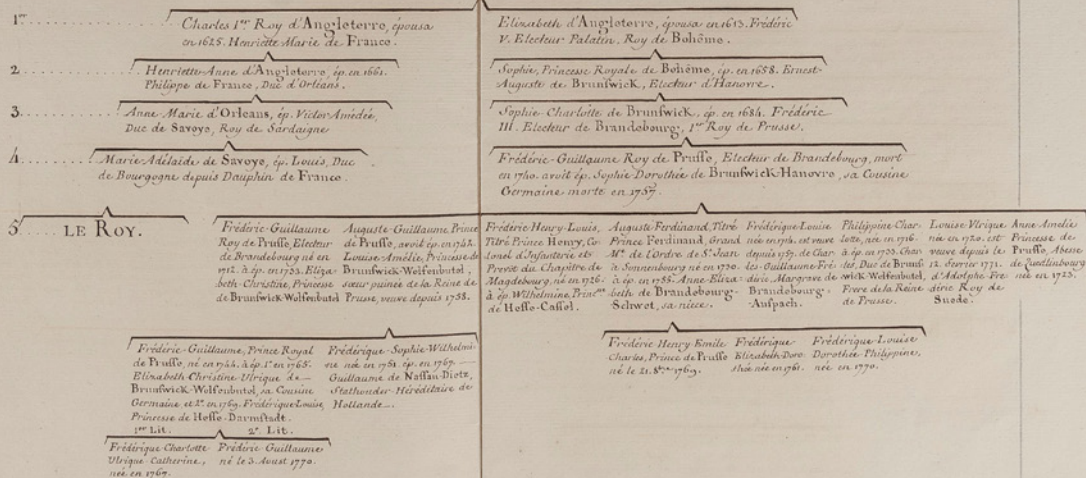 1er. Charles 1er. Roy d'Angleterre, épousa
en 1625. Henriette Marie de France.
Elizabeth d'Angleterre, épousa en 1613. Frédéric
V. Electeur Palatin, Roy de Bohême.
2. Henriette-Anne d'Angleterre, ép. en 1661.
Philippe de France, Duc d'Orléans.
Sophie, Princesse Royale de Bohême, ép. en 1658. Ernest-
Auguste de Brunswick, Electeur d'Hanovre.
3. Anne-Marie d'Orleans, ép. Victor Amédée,
Duc de Savoye, Roy de Sardaigne
Sophie-Charlotte de Brunswick, ép. en 1684. Frédéric
III. Electeur de Brandebourg, 1er Roy de Prusse.
4. Marie-Adélaïde de Savoye, ép. Louis, Duc
de Bourgogne depuis Dauphin de France.
Frédéric-Guillaume Roy de Prusse, Electeur de Brandebourg, mort
en 1740. avoit ép. Sophie Dorothée de Brunswick-Hanovre, sa Cousine
Germaine morte en 1757.
5. LE ROY.
Frédéric-Guillaume
Roy de Prusse, Electeur
de Brandebourg né en
1712. à ép. en 1733. Eliza-
beth-Christine, Princesse
de Brunswick-Wolfenbutel
Auguste-Guillaume Prince
de Prusse, avoit ép. en 1742.
Louise-Amélie, Princesse de
Brunswick-Wolfenbutel,
sœur puinée de la Reine de
Prusse, veuve depuis 1758.
Frédéric Henry-Louis,
Titré Prince Henry, Co-
lonel d'Infanterie et
Prevôt du Chapitre de
Magdebourg, né en 1726.
à ép. Wilhelmine, Princsse.
de Hesse-Cassel.
Auguste-Ferdinand, Titré
Prince Ferdinand, Grand
Me. de l'Ordre de St. Jean
à Sonnenbourg né en 1730.
à ép. en 1755. Anne-Eliza-
beth de Brandebourg-
Schwet, sa nièce.
Frédérique-Louise
née en 1714. est veuve
depuis 1757. de Char-
les-Guillaume-Fré-
déric, Margrave de
Brandebourg-
Anspach.
Philippine Char-
lotte, née en 1716.
à ép. en 1733. Char-
les, Duc de Bruns-
wick-Wolfenbutel,
Frere de la Reine
de Prusse.
Louise-Ulrique
née en 1720. est
veuve depuis le
12. Fevrier 1771.
d'Adolphe-Fre-
déric Roy de
Suede.
Anne Amelie
Princesse de
Prusse, Abesse
de Quedlinbourg
née en 1723.
Frédéric-Guillaume, Prince Royal
de Prusse, né en 1744. à ép. 1o. en 1765.
Elizabeth Christine Ulrique de
Brunswick-Wolfenbutel, sa Cousine
Germaine, et 2o. en 1769. Frédérique-Louise,
Princesse de Hesse-Darmstadt.
1er Lit. 2e. Lit.
Frédérique-Sophie-Wilhelmi-
ne née en 1751. ép. en 1767.
Guillaume de Nassau-Dietz,
Stathouder Héréditaire de
Hollande.
Frédéric-Henry-Emile
Charles, Prince de Prusse
né le 21. 8bre 1769.
Frédérique
Elizabeth-Doro-
thée née en 1761.
Frédérique-Louise
Dorothée-Philippine,
née en 1770.
Frédérique Charlotte
Ulrique-Catherine,
née en 1767.
Frédéric-Guillaume
né le 3. Aoust 1770.